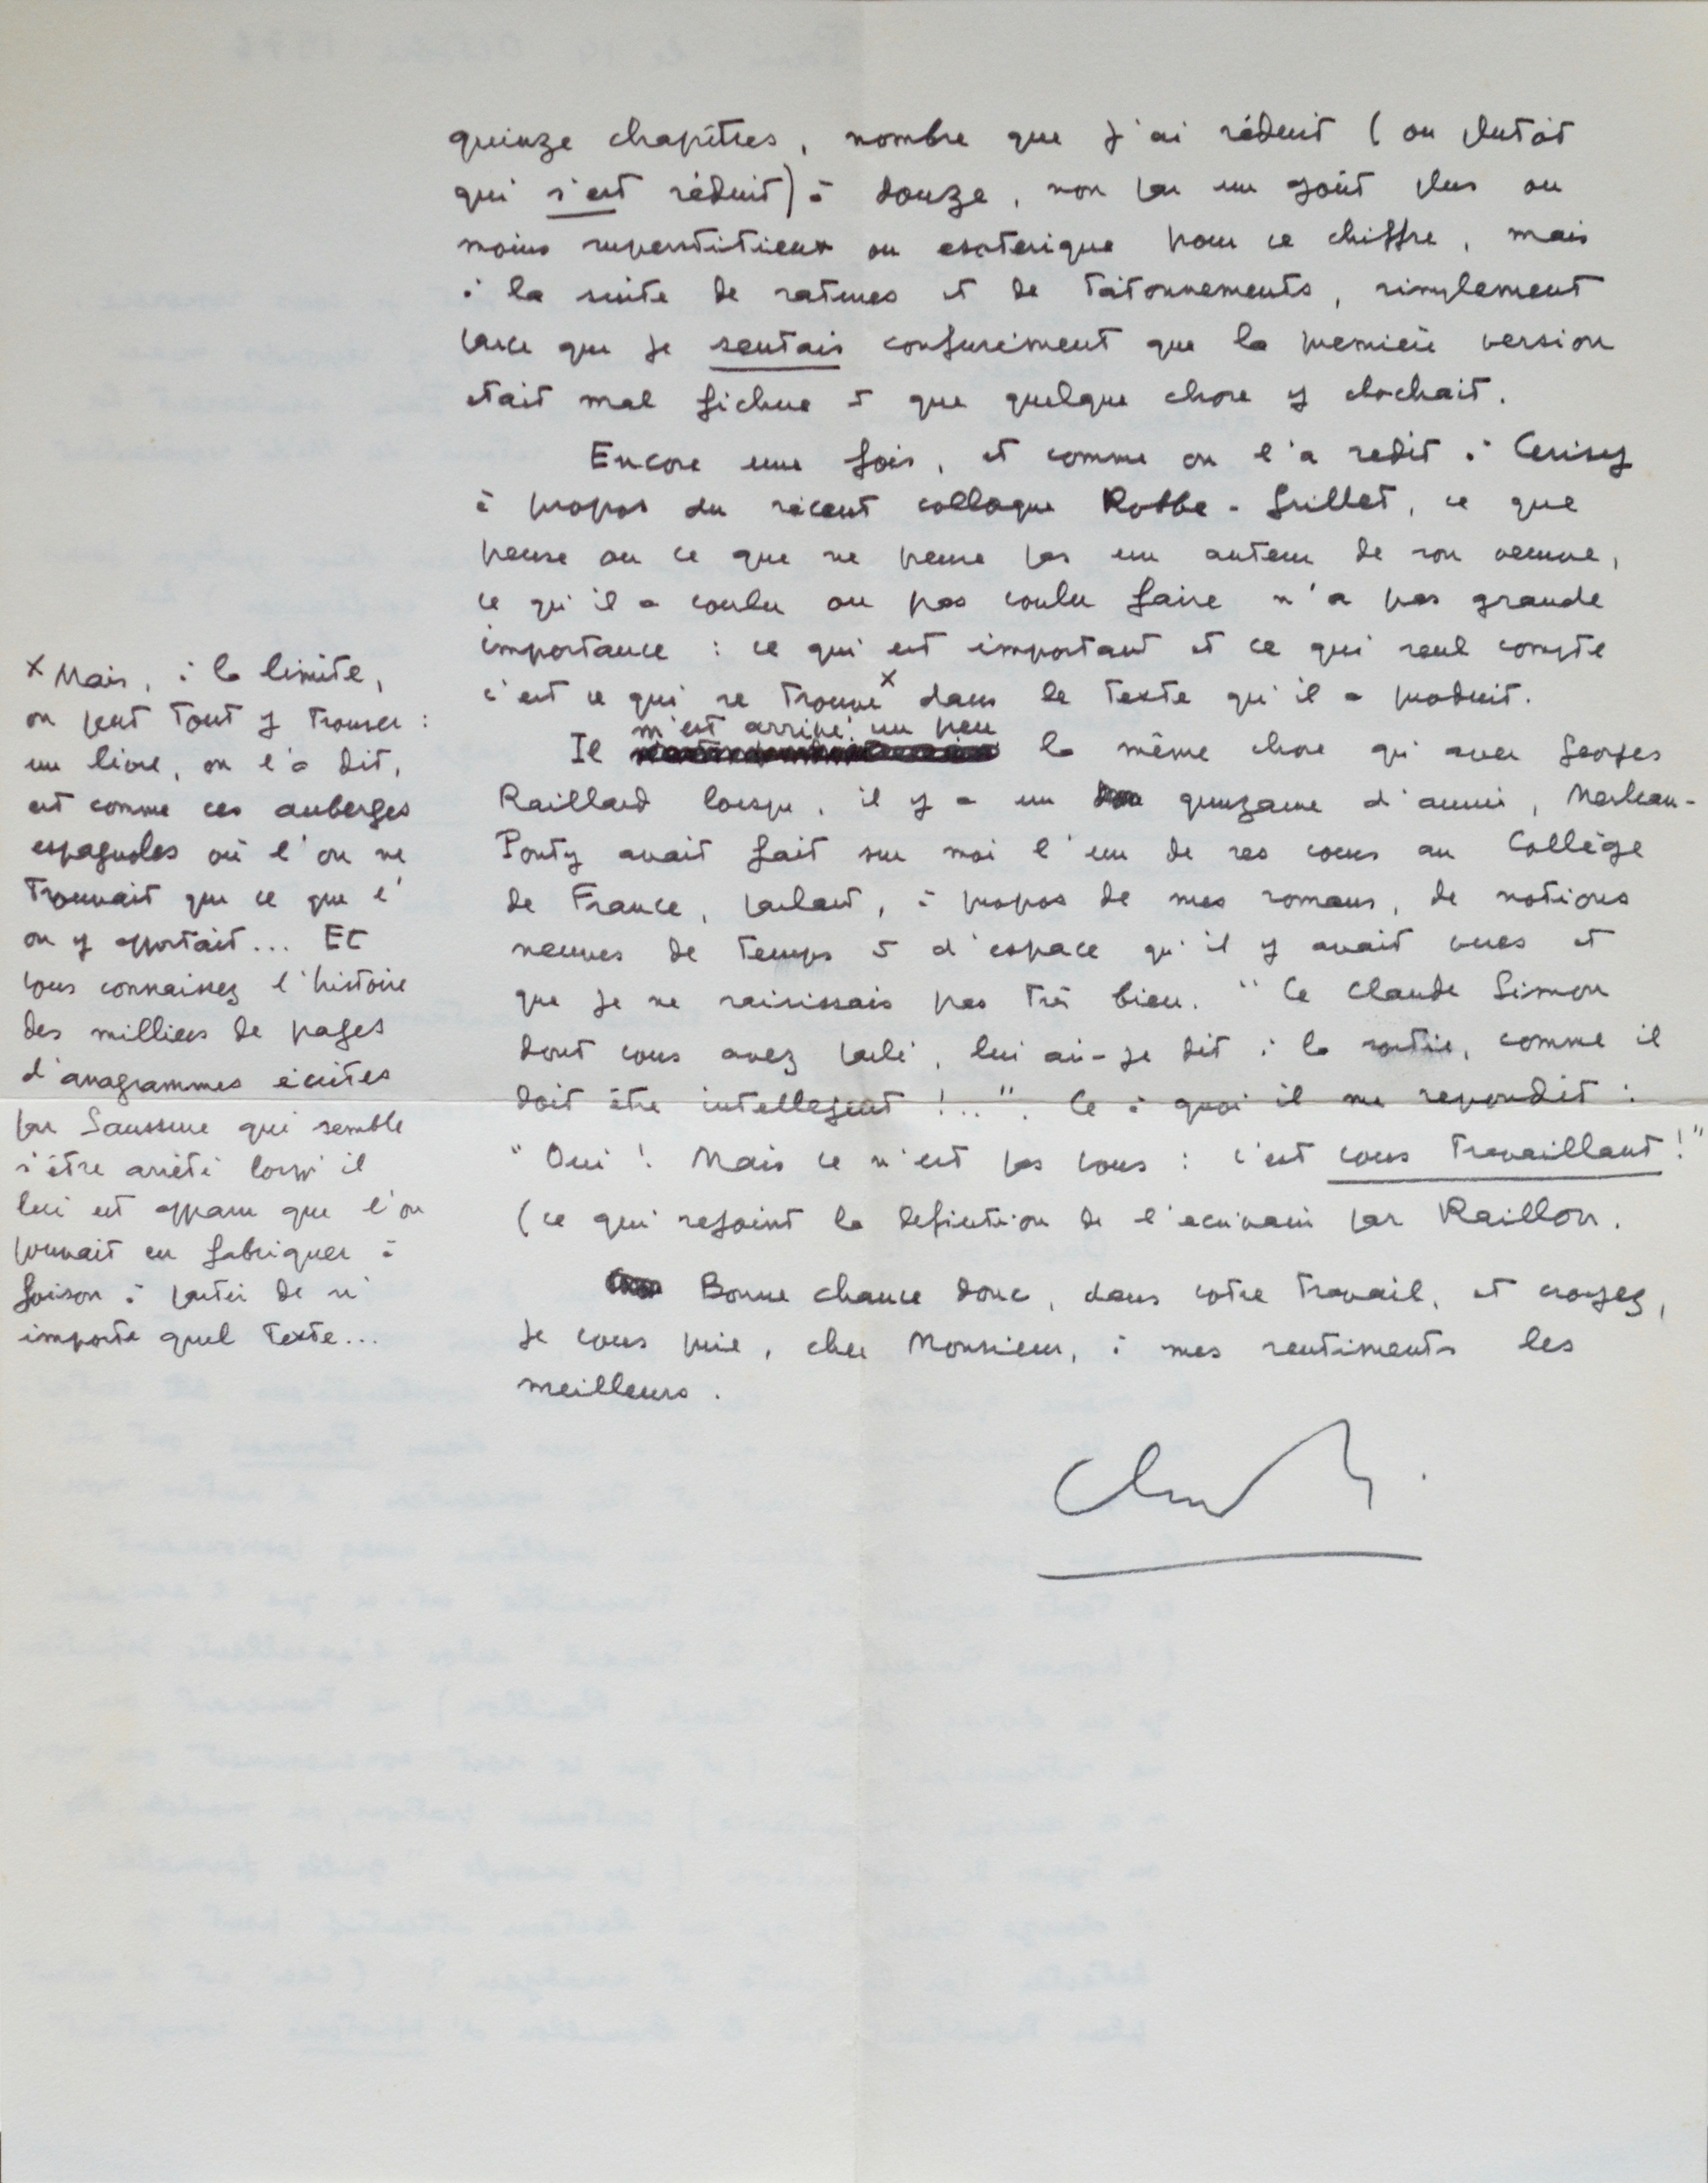 quinze chapîtres, nombre que j'ai réduit (ou plutôt
qui s'est réduit) à douze, non par un goût plus ou
moins superstitieux ou esoterique pour ce chiffre, mais
à la suite de ratures et de tâtonnements, simplement
parce que je sentais confusément que la première version
etait mal fichue et que quelque chose y clochait.
Encore une fois, et comme on l'a redit à Cerisy
à propos du récent colloque Robbe-Grillet, ce que
pense ou ce que ne pense pas un auteur de son oeuvre,
ce qu'il a voulu ou pas voulu faire n'a pas grande
importance : ce qui est important et ce qui seul compte
c'est ce qui se trouve x dans le texte qu'il a produit.
m'est arrivé un peu
Il la même chose qu'avec Georges
Raillard lorsque, il y a un quinzaine d'années, Merleau-
Ponty avait fait sur moi l'un de ses cours au Collège
de France, parlant, à propos de mes romans, de notions
neuves de temps et d'espace qu'il y avait vues et
que je ne saisissais pas très bien. "Ce Claude Simon
dont vous avez parlé, lui ai-je dit à la sortie, comme il
doit être intellegent !..". Ce à quoi il me repondit :
"Oui ! Mais ce n'est pas vous : c'est vous travaillant !"
(ce qui rejoint la definition de l'ecrivain par Raillon.
Bonne chance donc, dans votre travail, et croyez,
je vous prie, cher Monsieur, à mes sentiments les
meilleurs.
x Mais, à la limite,
on peut tout y trouver :
un livre, on l'a dit,
est comme ces auberges
espagnoles où l'on ne
trouvait que ce que l'
on y apportait... Et
vous connaissez l'histoire
des milliers de pages
d'anagrammes écrites
par Saussure qui semble
s'être arrêté lorsqu'il
lui est apparu que l'on
pouvait en fabriquer à
foison à partir de n'
importe quel texte...